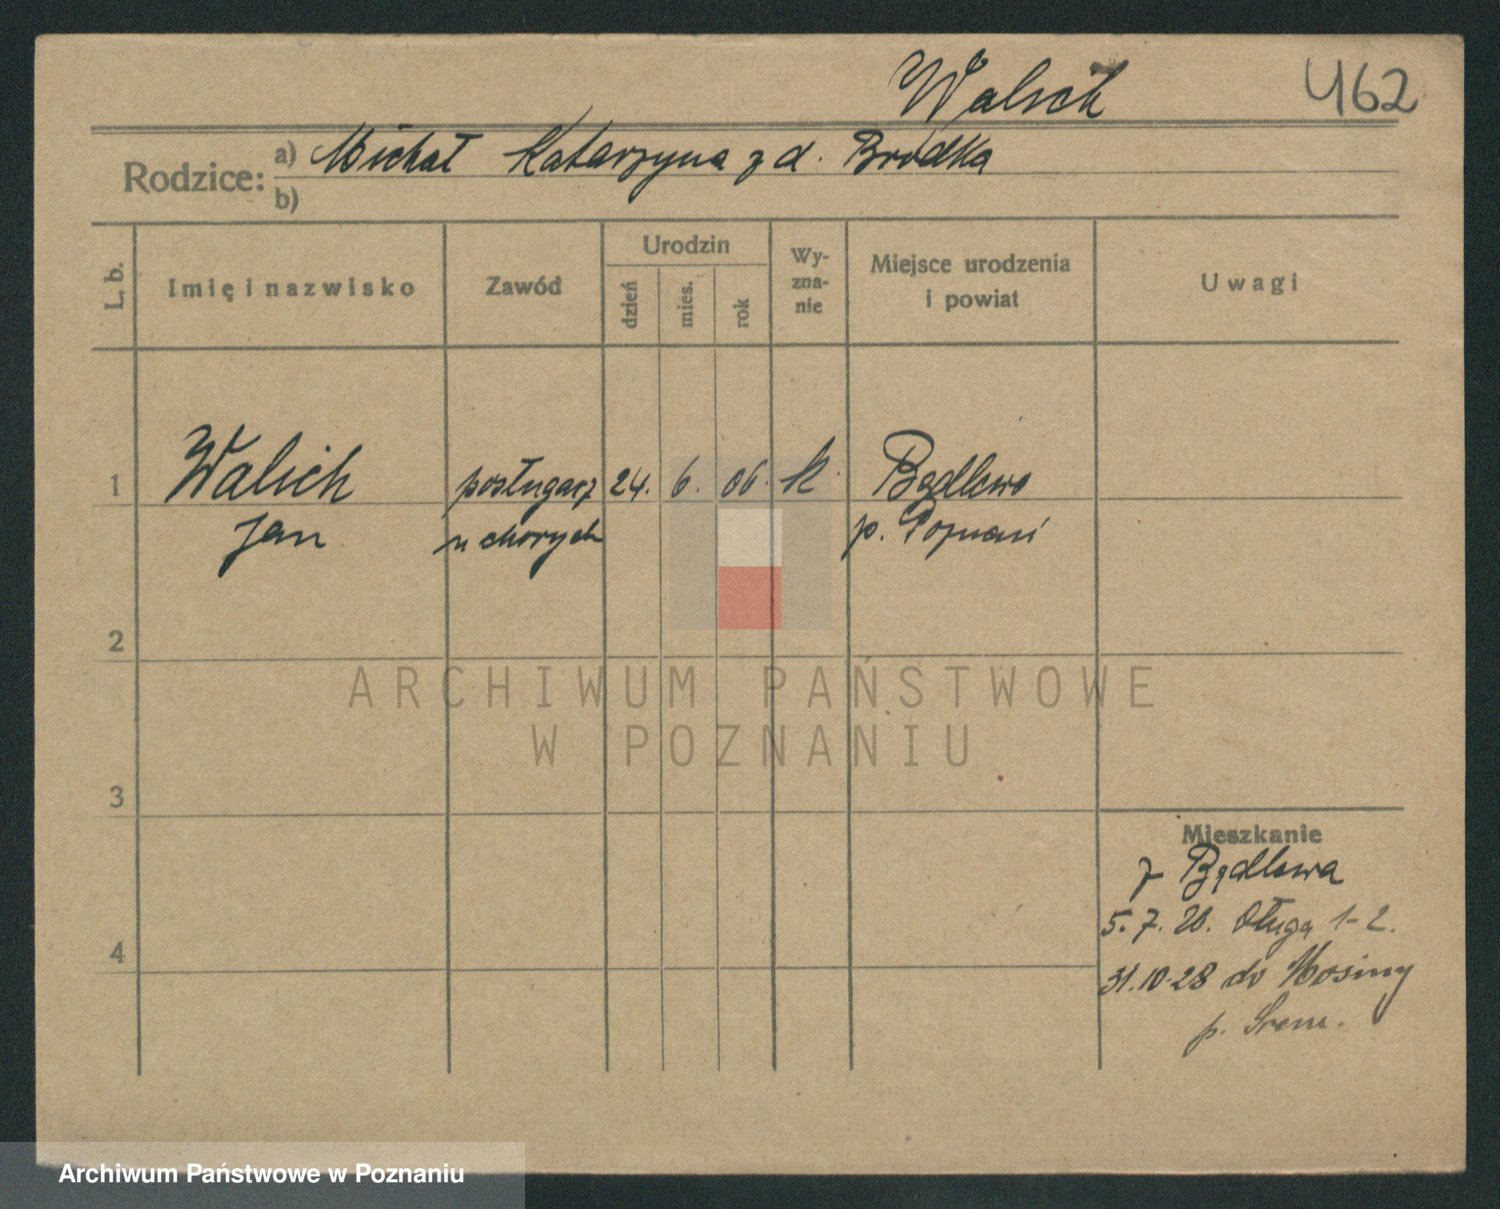 Walich
462
Rodzice: a) Michał Katarzyna z d. Brodka
b)
L. b.
Imię i nazwisko
Zawód
Urodzin
dzień
mies.
rok
Wy-
zna-
nie
Miejsce urodzenia
i powiat
Uwagi
1 Walich posługacz 24. 6. 06. k. Będlewo
Jan u chorych p. Poznań
2
ARCHIWUM PAŃSTWOWE
W POZNANIU
3
Mieszkanie
z Będlewa
5.7.26. Długa 1-2.
4
31.10.28 do Mosiny
p. Śrem.
Archiwum Państwowe w Poznaniu